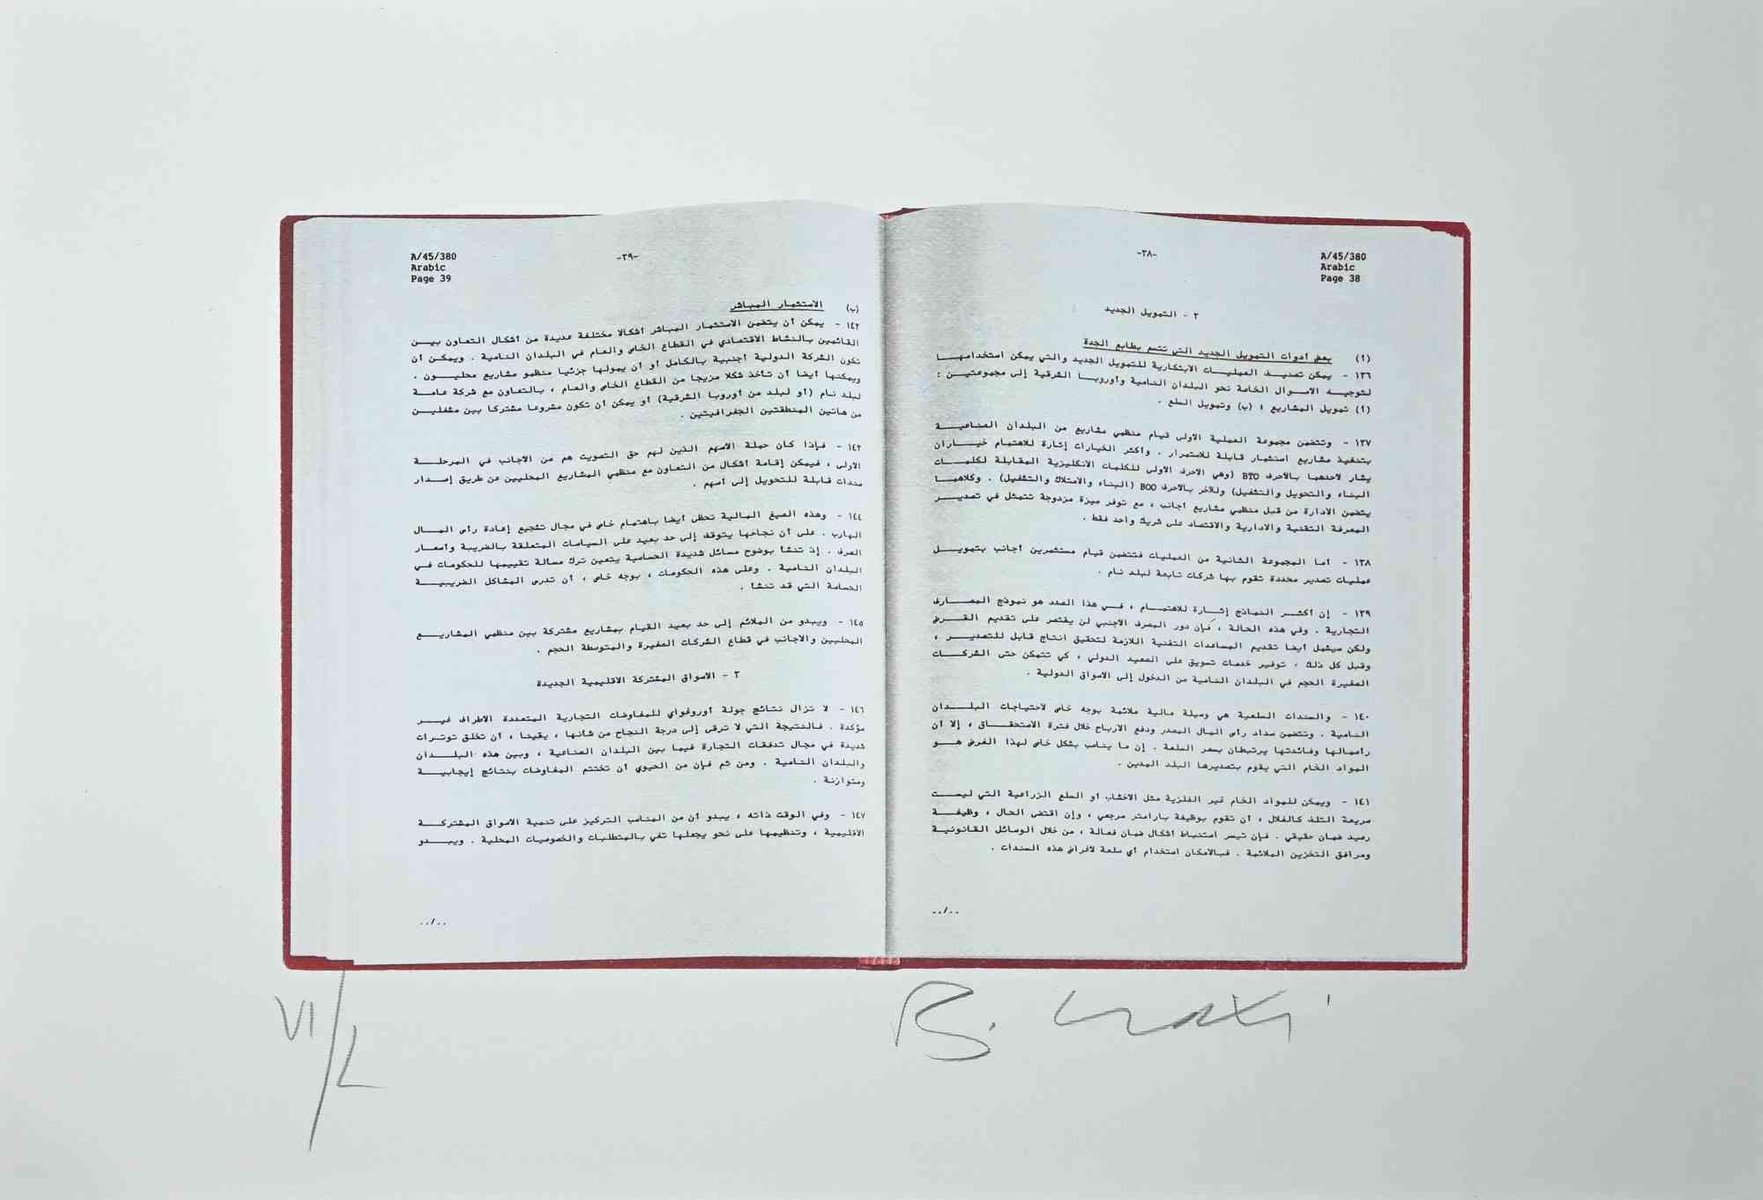 A/45/380
Arabic
Page 38
-٣٨-
٢ - التمويل الجديد
(أ) بعض أدوات التمويل الجديد التي تتسم بطابع الجدة
١٣٦ - يمكن تصنيف العمليات الابتكارية للتمويل الجديد والتي يمكن استخدامها
لتوجيه الاموال الخاصة نحو البلدان النامية وأوروبا الشرقية إلى مجموعتين :
(أ) تمويل المشاريع ؛ (ب) وتمويل السلع .
١٣٧ - وتتضمن مجموعة العملية الاولى قيام منظمي مشاريع من البلدان الصناعية
بتنفيذ مشاريع استثمار قابلة للاستمرار . وأكثر الخيارات إثارة للاهتمام خياران
يشار لاحدهما بالاحرف BTO (وهي الاحرف الاولى للكلمات الانكليزية المقابلة لكلمات
البناء والتحويل والتشغيل) وللآخر بالاحرف BOO (البناء والامتلاك والتشغيل) . وكلاهما
يتضمن الادارة من قبل منظمي مشاريع أجانب ، مع توفر ميزة مزدوجة تتمثل في تصدير
المعرفة التقنية والادارية والاقتصاد على شريك واحد فقط .
١٣٨ - أما المجموعة الثانية من العمليات فتتضمن قيام مستثمرين أجانب بتمويل
عمليات تصدير محددة تقوم بها شركات تابعة لبلد نام .
١٣٩ - إن أكثر النماذج إثارة للاهتمام ، في هذا الصدد هو نموذج المصارف
التجارية . وفي هذه الحالة ، فإن دور المصرف الاجنبي لن يقتصر على تقديم القرض
ولكن سيشمل أيضا تقديم المساعدات التقنية اللازمة لتحقيق انتاج قابل للتصدير ،
وقبل كل ذلك ، توفير خدمات تسويق على الصعيد الدولي ، كي تتمكن حتى الشركات
الصغيرة الحجم في البلدان النامية من الدخول إلى الاسواق الدولية .
١٤٠ - والسندات السلعية هي وسيلة مالية ملائمة بوجه خاص لاحتياجات البلدان
النامية . وتتضمن سداد رأس المال المصدر ودفع الارباح خلال فترة الاستحقاق ، إلا أن
رأسمالها وفائدتها يرتبطان بسعر السلعة . إن ما يناسب بشكل خاص لهذا الغرض هو
المواد الخام التي يقوم بتصديرها البلد المدين .
١٤١ - ويمكن للمواد الخام غير الفلزية مثل الاخشاب أو السلع الزراعية التي ليست
سريعة التلف كالغلال ، أن تقوم بوظيفة بارامتر مرجعي ، وإن اقتضى الحال ، وظيفة
رصيد ضمان حقيقي . فإن تيسر استنباط أشكال ضمان فعالة ، من خلال الوسائل القانونية
ومرافق التخزين الملائمة . فبالامكان استخدام أي سلعة لاغراض هذه السندات .
../..
A/45/380
Arabic
Page 39
-٣٩-
(ب) الاستثمار المباشر
١٤٢ - يمكن أن يتضمن الاستثمار المباشر أشكالا مختلفة عديدة من أشكال التعاون بين
القائمين بالنشاط الاقتصادي في القطاع الخاص والعام في البلدان النامية . ويمكن أن
تكون الشركة الدولية أجنبية بالكامل أو أن يمولها جزئيا منظمو مشاريع محليون .
ويمكنها أيضا أن تأخذ شكلا مزيجا من القطاع الخاص والعام ، بالتعاون مع شركة عامة
لبلد نام (أو لبلد من أوروبا الشرقية) أو يمكن أن تكون مشروعا مشتركا بين مشغلين
من هاتين المنطقتين الجغرافيتين .
١٤٣ - فإذا كان حملة الاسهم الذين لهم حق التصويت هم من الاجانب في المرحلة
الاولى ، فيمكن إقامة أشكال من التعاون مع منظمي المشاريع المحليين عن طريق إصدار
سندات قابلة للتحويل إلى أسهم .
١٤٤ - وهذه الصيغ المالية تحظى أيضا باهتمام خاص في مجال تشجيع إعادة رأس المال
الهارب . على أن نجاحها يتوقف إلى حد بعيد على السياسات المتعلقة بالضريبة وأسعار
الصرف . إذ تنشأ بوضوح مسائل شديدة الحساسية يتعين ترك مسألة تقييمها للحكومات في
البلدان النامية . وعلى هذه الحكومات ، بوجه خاص ، أن تدرس المشاكل الضريبية
الحساسة التي قد تنشأ .
١٤٥ - ويبدو من الملائم إلى حد بعيد القيام بمشاريع مشتركة بين منظمي المشاريع
المحليين والاجانب في قطاع الشركات الصغيرة والمتوسطة الحجم .
٣ - الاسواق المشتركة الاقليمية الجديدة
١٤٦ - لا تزال نتائج جولة أوروغواي للمفاوضات التجارية المتعددة الاطراف غير
مؤكدة . فالنتيجة التي لا ترقى إلى درجة النجاح من شأنها ، يقينا ، أن تخلق توترات
شديدة في مجال تدفقات التجارة فيما بين البلدان الصناعية ، وبين هذه البلدان
والبلدان النامية . ومن ثم فإن من الحيوي أن تختتم المفاوضات بنتائج إيجابية
ومتوازنة .
١٤٧ - وفي الوقت ذاته ، يبدو أن من المناسب التركيز على تنمية الاسواق المشتركة
الاقليمية ، وتنظيمها على نحو يجعلها تفي بالمتطلبات والخصوصيات المحلية . ويبدو
../..
VI/L
B.